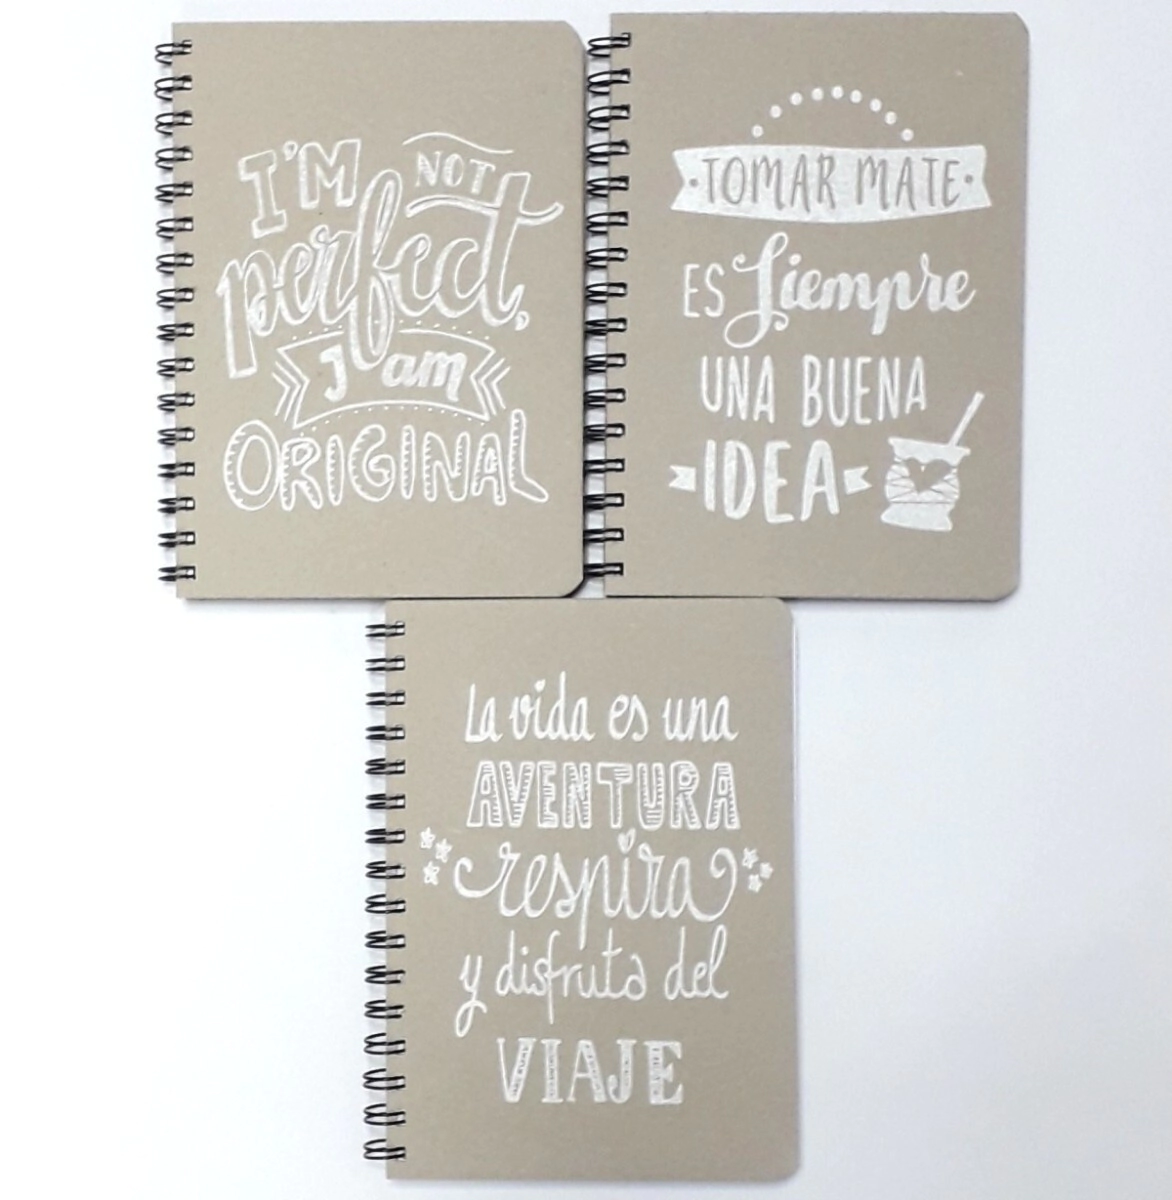 I'M NOT
perfect,
I am
ORIGINAL
TOMAR MATE
ES Siempre
UNA BUENA
IDEA
La vida es una
AVENTURA
respira
y disfruta del
VIAJE